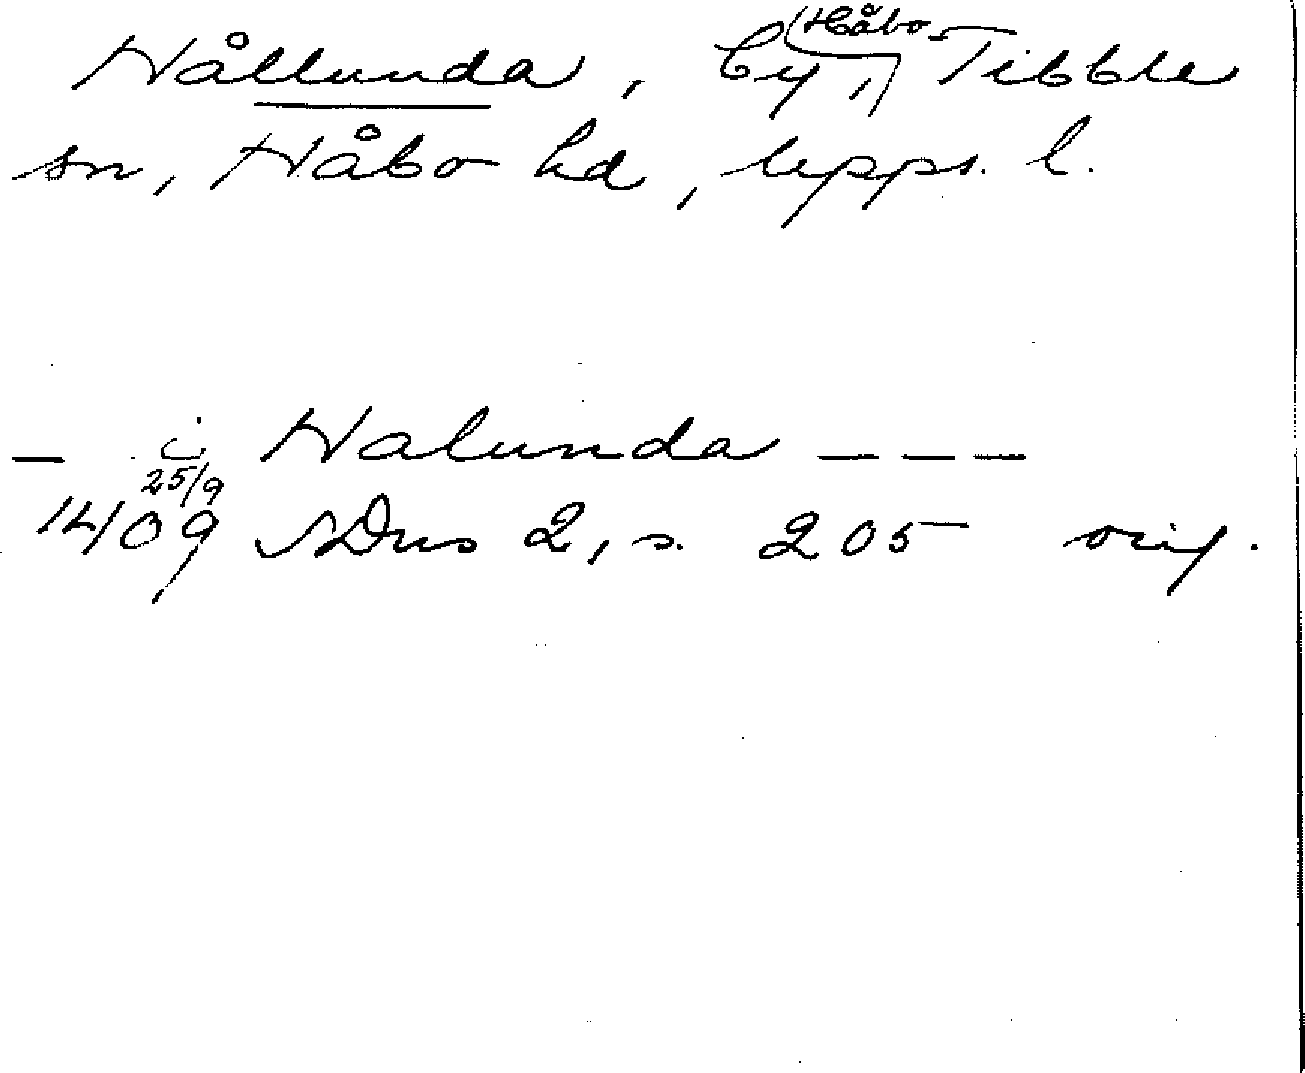 Hållunda, by, Håbo-Tibble
sn, Håbo hd, Upps. l.
– i Halunda – – –
25/9
1409 SDns 2, s. 205 orig.